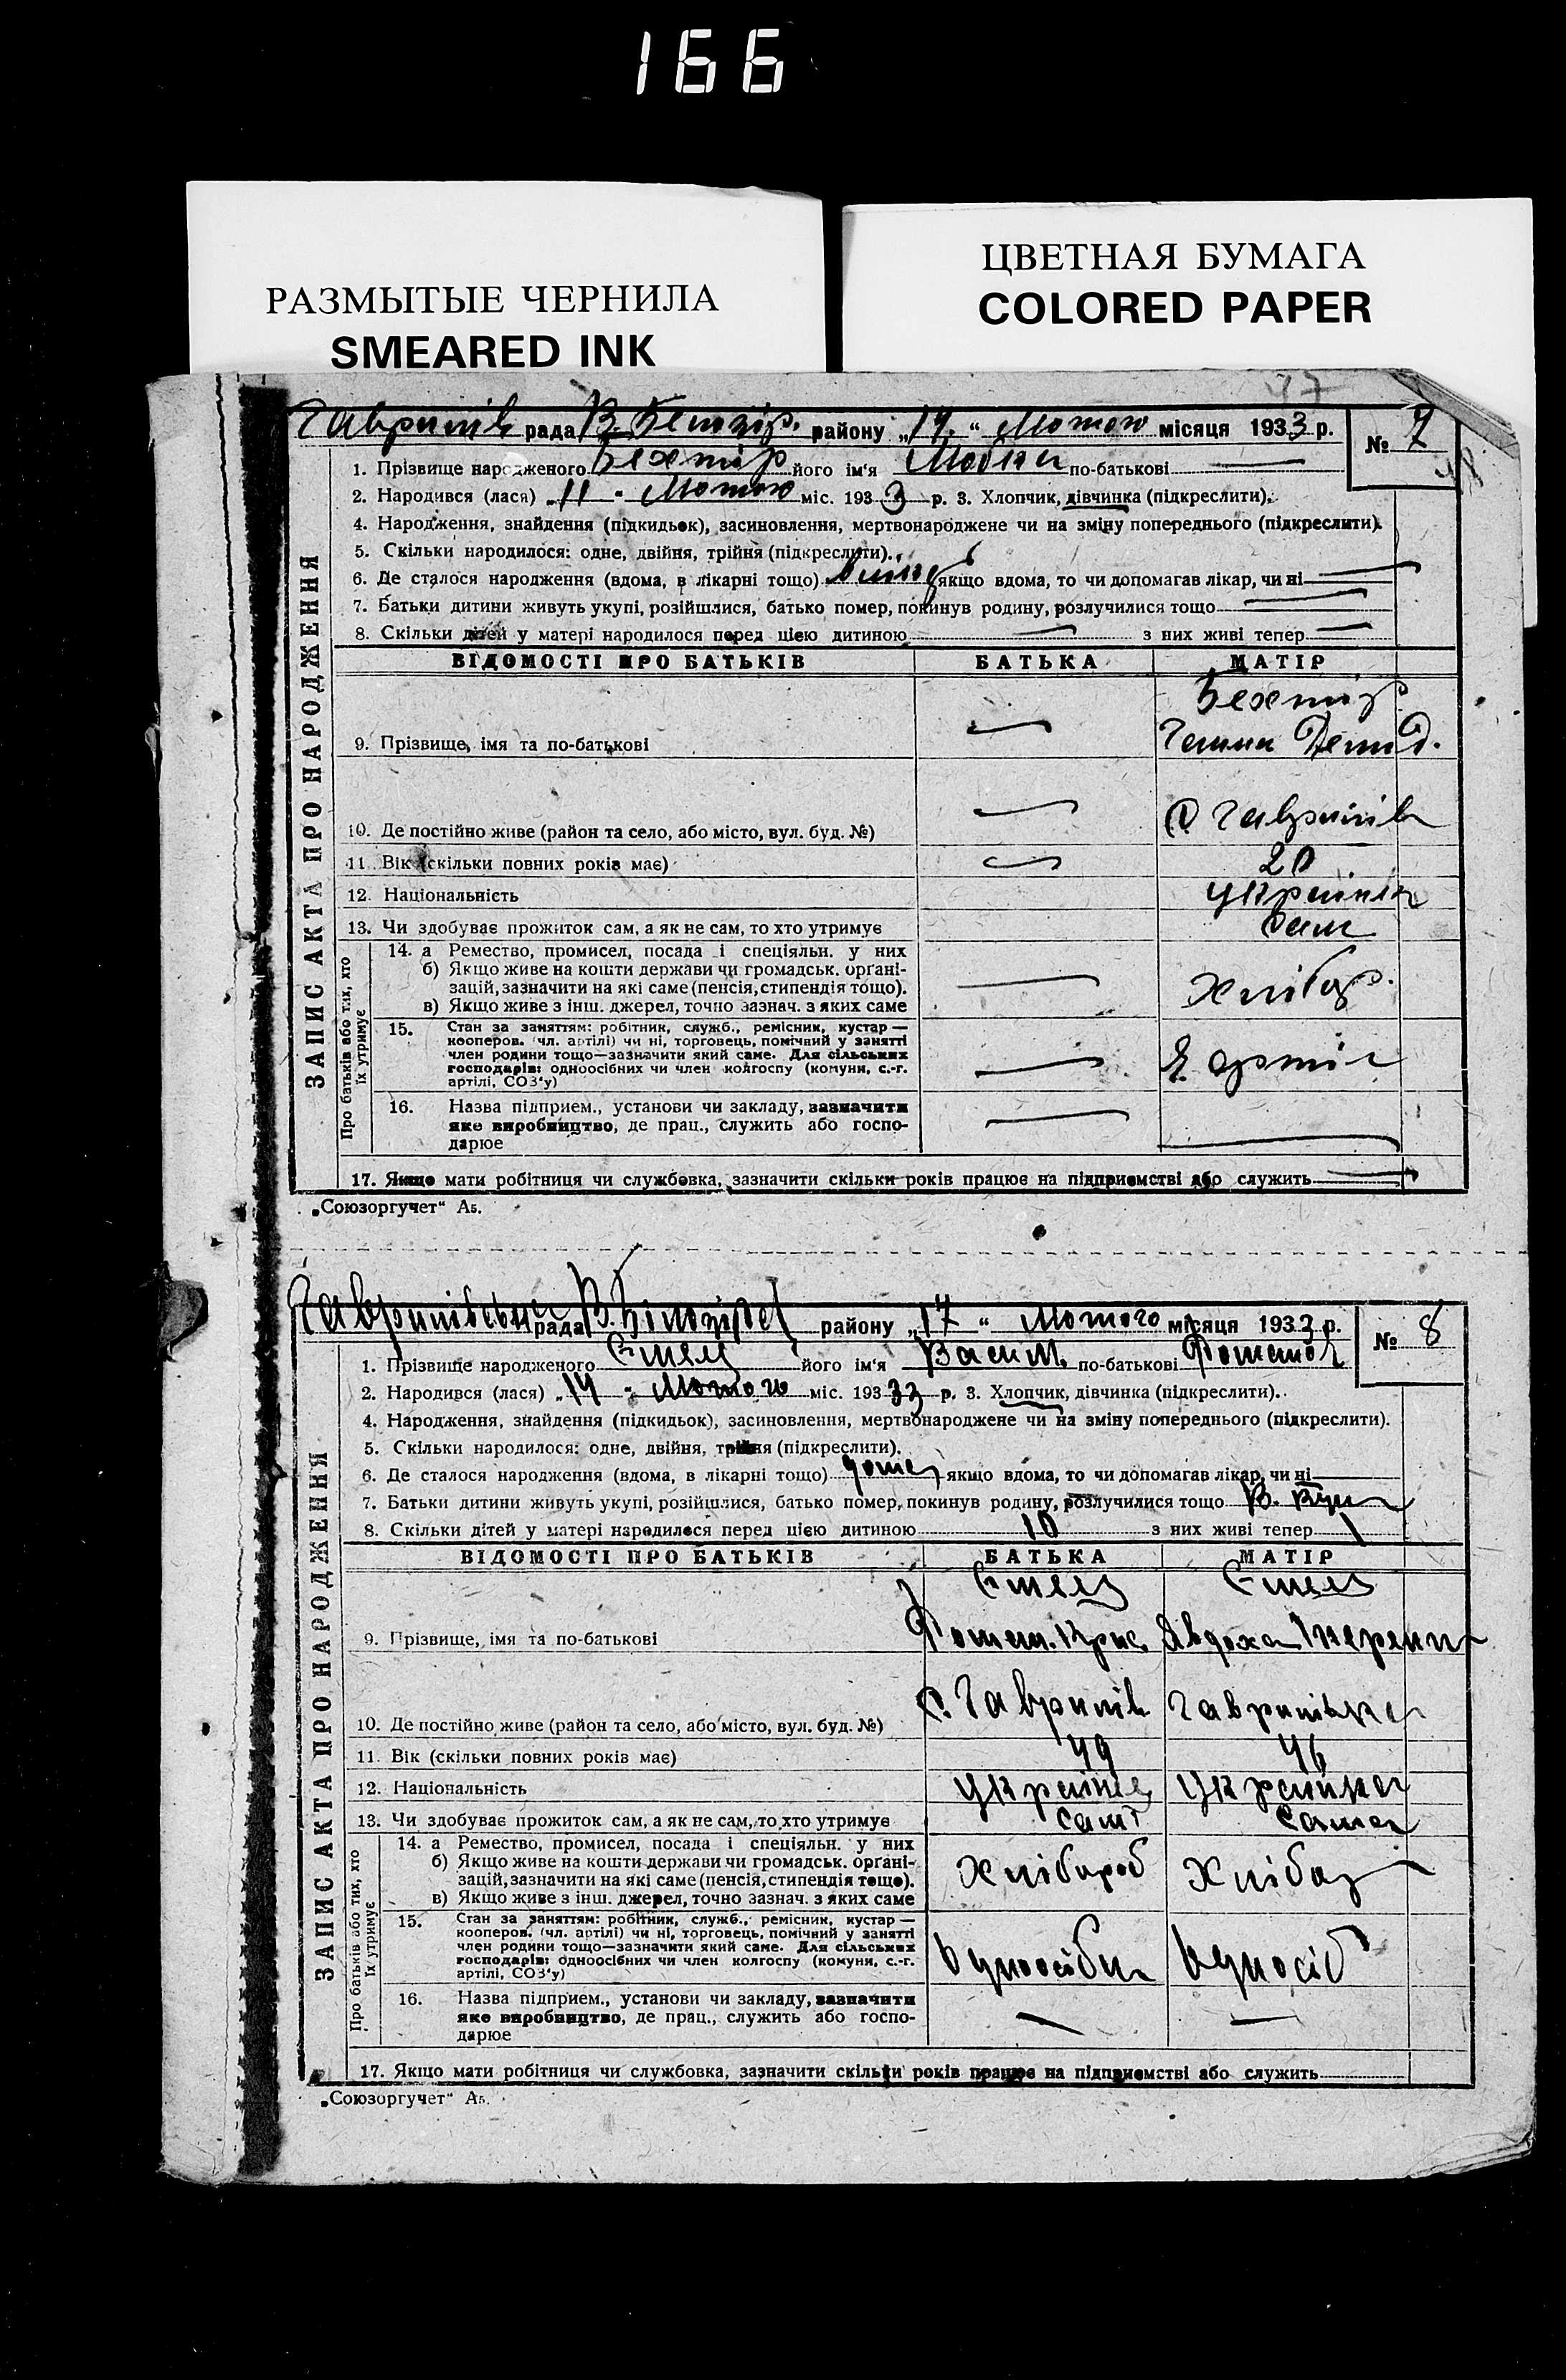 166
РАЗМЫТЫЕ ЧЕРНИЛА
SMEARED INK
ЦВЕТНАЯ БУМАГА
COLORED PAPER
рада В. району „ “ Лютого місяця 1933 р. № 7
1. Прізвище народженого Бехтір його ім'я по-батькові
2. Народився (лася) „11 “ Лютого міс. 1933 р. 3. Хлопчик, дівчинка (підкреслити).
4. Народження, знайдення (підкидьок), засиновлення, мертвонароджене чи на зміну попереднього (підкреслити).
5. Скільки народилося: одне, двійня, трійня (підкреслити).
6. Де сталося народження (вдома, в лікарні тощо) якщо вдома, то чи допомагав лікар, чи ні
7. Батьки дитини живуть укупі, розійшлися, батько помер, покинув родину, розлучилися тощо
8. Скільки дітей у матері народилося перед цією дитиною з них живі тепер
ЗАПИС АКТА ПРО НАРОДЖЕННЯ
ВІДОМОСТІ ПРО БАТЬКІВ БАТЬКА МАТІР
Бехтір
9. Прізвище, імя та по-батькові Демид.
10. Де постійно живе (район та село, або місто, вул. буд. №) с Гаврилів
11. Вік (скільки повних років має) 20
12. Національність українка
13. Чи здобуває прожиток сам, а як не сам, то хто утримує сам
Про батьків або тих, хто їх утримує
14. а Ремество, промисел, посада і спеціяльн. у них
б) Якщо живе на кошти держави чи громадськ. органі-
зацій, зазначити на які саме (пенсія, стипендія тощо). хлібор.
в) Якщо живе з інш. джерел, точно зазнач. з яких саме
15. Стан за заняттям: робітник, служб., ремісник, кустар —
кооперов. (чл. артілі) чи ні, торговець, помічний у занятті
член родини тощо—зазначити який саме. Для сільських
господарів: одноосібних чи член колгоспу (комуни, с.-г.
артілі, СОЗ'у)
16. Назва підприєм., установи чи закладу, зазначити
яке виробництво, де прац., служить або госпо-
дарює
17. Якщо мати робітниця чи службовка, зазначити скільки років працює на підприємстві або служить
„Союзоргучет“ А5.
рада В. району „17 “ Лютого місяця 1933 р. № 8
1. Прізвище народженого його ім'я Васил. по-батькові
2. Народився (лася) „14 “ Лютого міс. 19333 р. 3. Хлопчик, дівчинка (підкреслити).
4. Народження, знайдення (підкидьок), засиновлення, мертвонароджене чи на зміну попереднього (підкреслити).
5. Скільки народилося: одне, двійня, трійня (підкреслити).
6. Де сталося народження (вдома, в лікарні тощо) дома якщо вдома, то чи допомагав лікар, чи ні
7. Батьки дитини живуть укупі, розійшлися, батько помер, покинув родину, розлучилися тощо
8. Скільки дітей у матері народилося перед цією дитиною 10 з них живі тепер 1
ЗАПИС АКТА ПРО НАРОДЖЕННЯ
ВІДОМОСТІ ПРО БАТЬКІВ БАТЬКА МАТІР
9. Прізвище, імя та по-батькові Явдоха
10. Де постійно живе (район та село, або місто, вул. буд. №) с. Гаврилів Гаврилівка
11. Вік (скільки повних років має) 49 46
12. Національність українець українка
13. Чи здобуває прожиток сам, а як не сам, то хто утримує сам сама
Про батьків або тих, хто їх утримує
14. а Ремество, промисел, посада і спеціяльн. у них
б) Якщо живе на кошти держави чи громадськ. органі-
зацій, зазначити на які саме (пенсія, стипендія тощо). хлібороб хлібор
в) Якщо живе з інш. джерел, точно зазнач. з яких саме
15. Стан за заняттям: робітник, служб., ремісник, кустар —
кооперов. (чл. артілі) чи ні, торговець, помічний у занятті
член родини тощо—зазначити який саме. Для сільських
господарів: одноосібних чи член колгоспу (комуни, с.-г.
артілі, СОЗ'у)
16. Назва підприєм., установи чи закладу, зазначити
яке виробництво, де прац., служить або госпо-
дарює
17. Якщо мати робітниця чи службовка, зазначити скільки років працює на підприємстві або служить
„Союзоргучет“ А5.